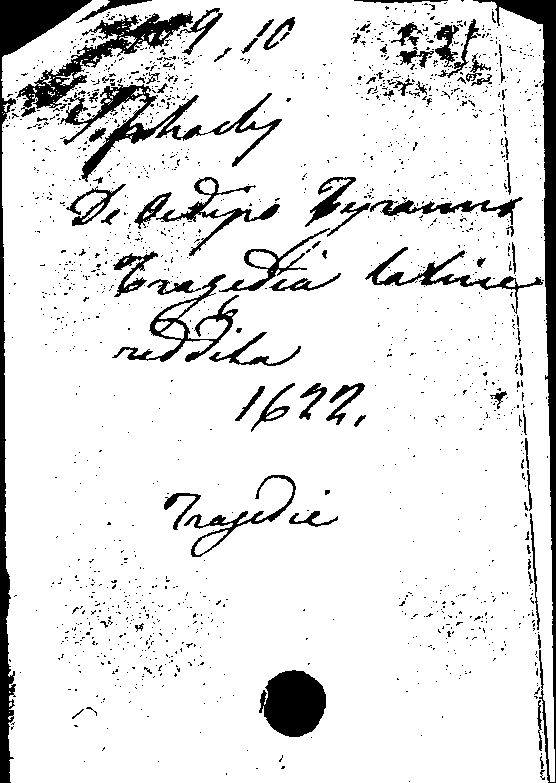 9,10
Sophoclis
De Oedipo Tyranno
Tragedia latine
reddita
1622.
Tragedie